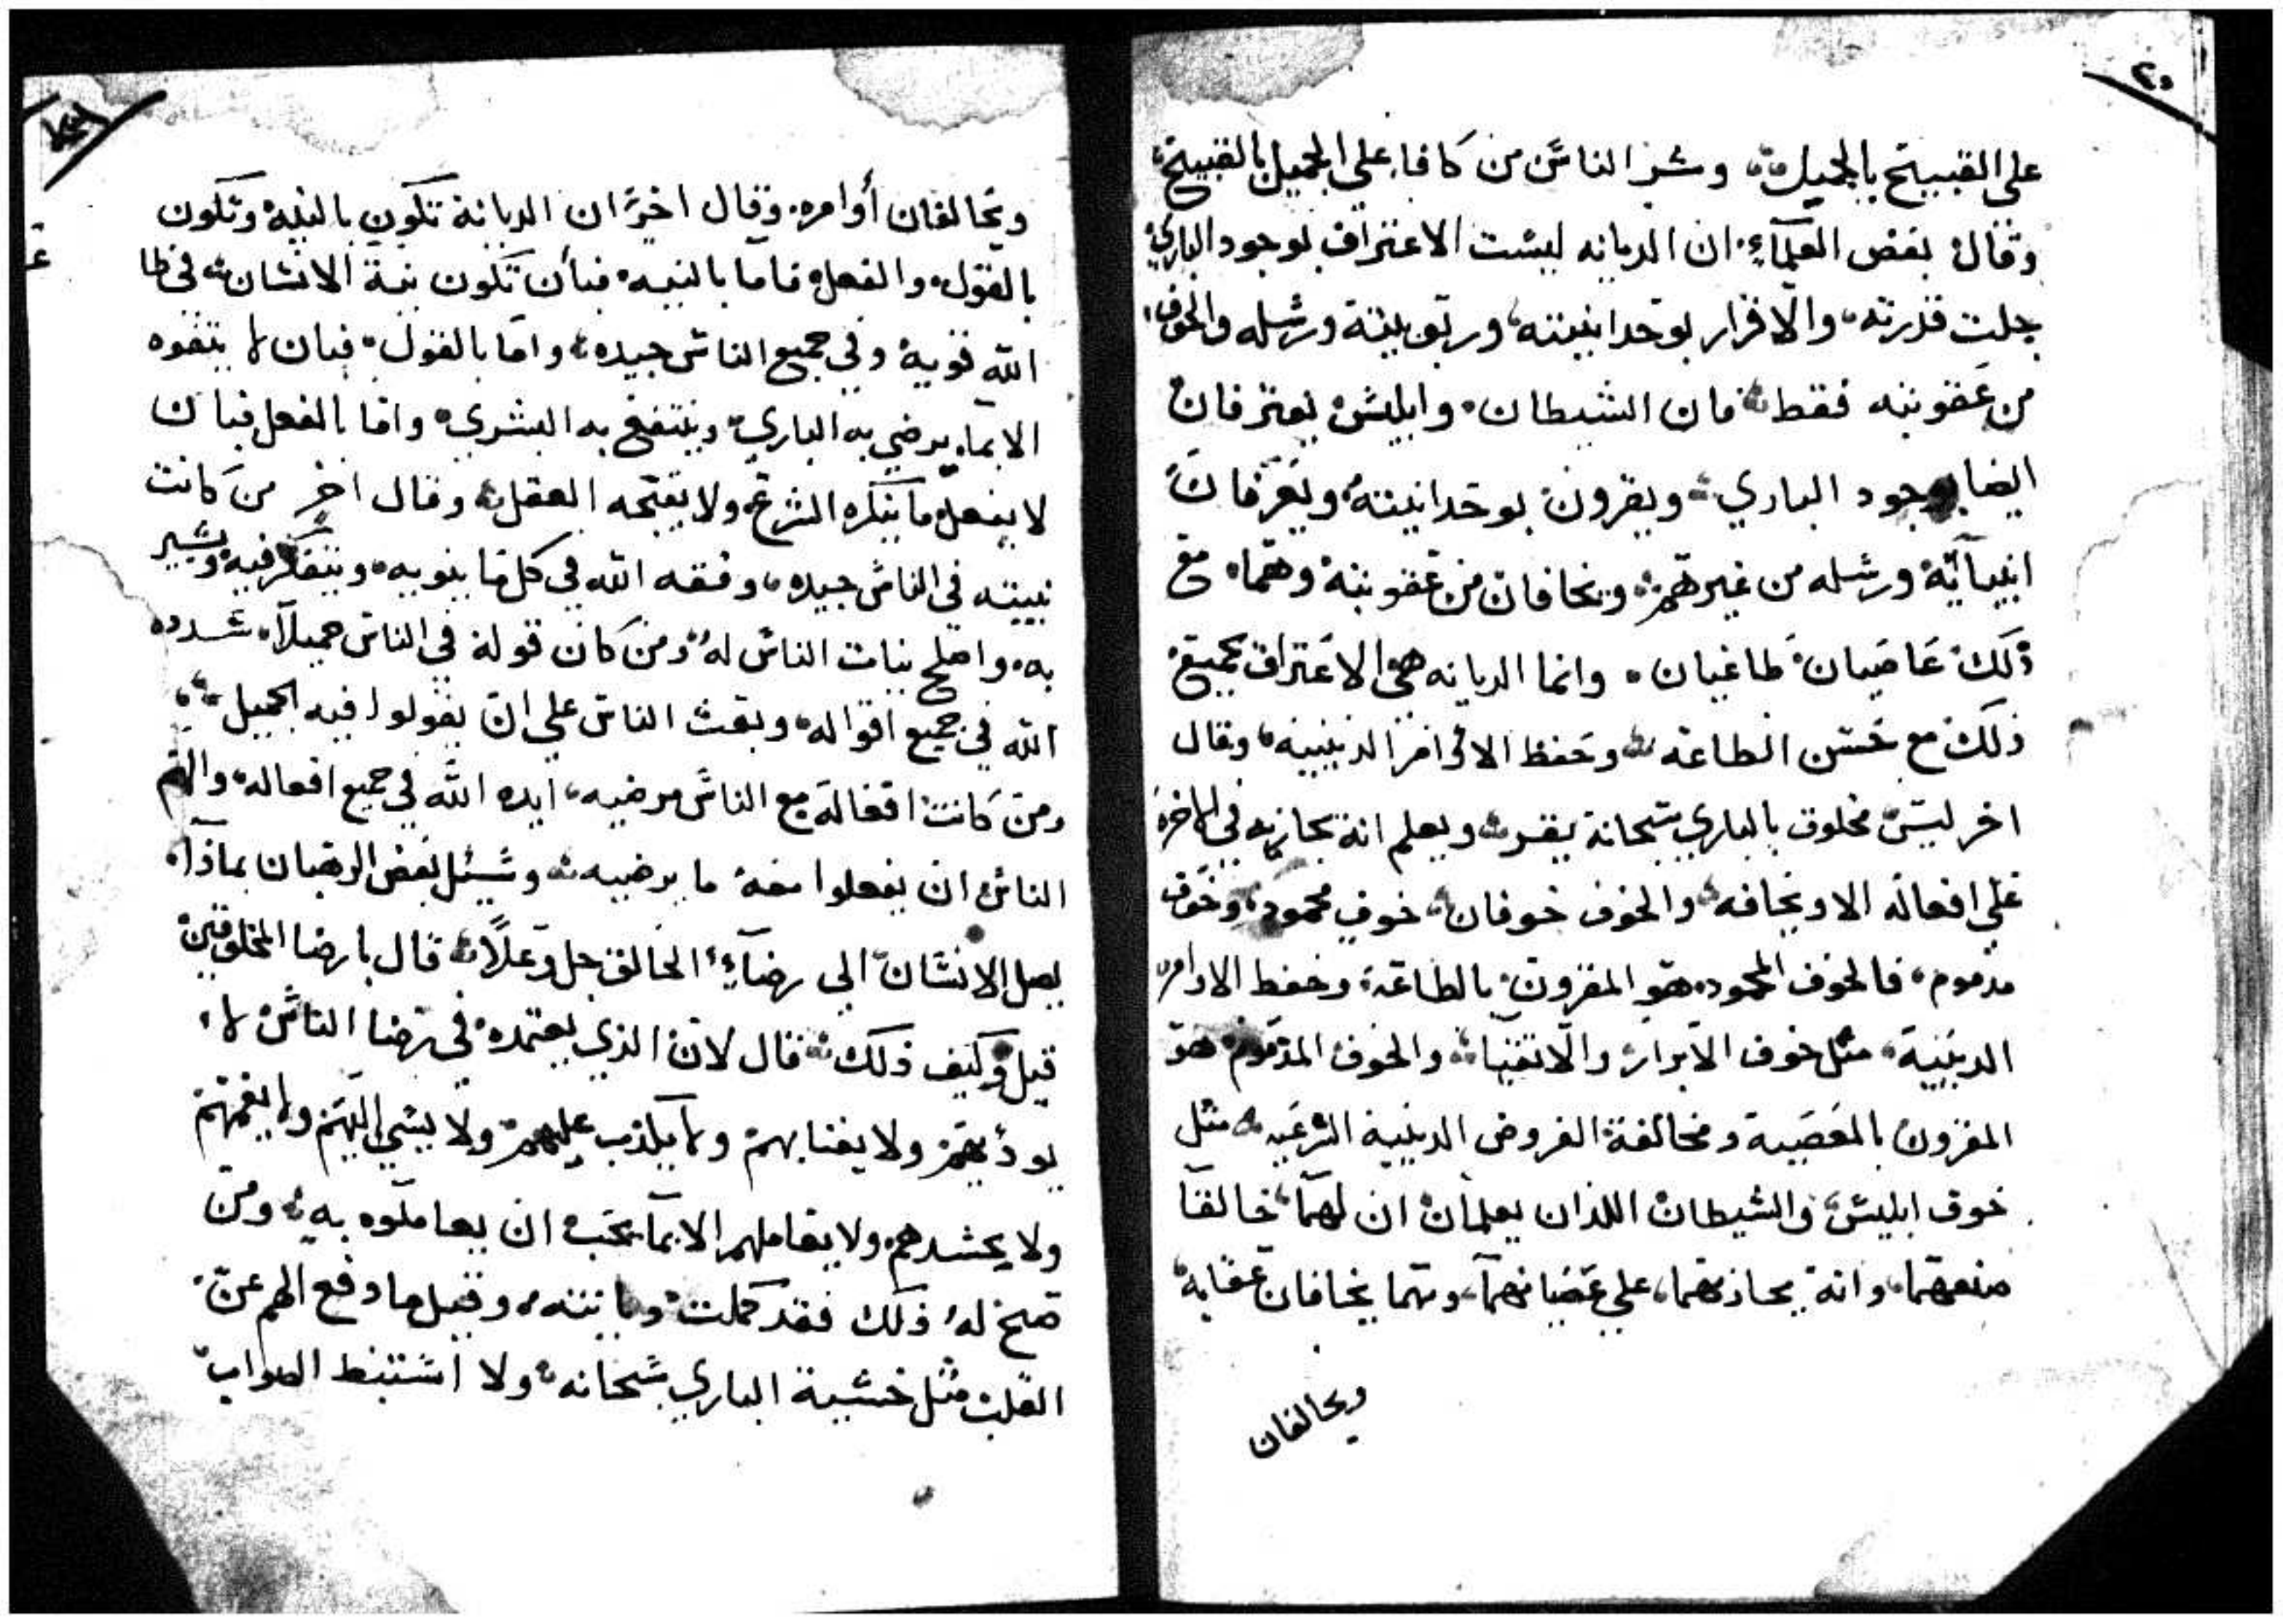 ٢٥
على القبيح بالجميل، وشر الناس من كافا على الجميل بالقبيح
وقال بعض العلمآء، ان الديانه ليست الاعتراف بوجود الباري
جلت قدرته، والاقرار بوحدانيته، وربوبيته ورسله والخوف
من عقوبته فقط، فان الشيطان، وابليس يعترفان
ايضا بوجود الباري، ويقرون بوحدانيته، ويعرفان
انبيآئه ورسله من غيرهم، ويخافان من عقوبته وهما، مع
ذلك عاصيان طاغيان، وانما الديانه هي الاعتراف بجميع
ذلك مع حسن الطاعه، وحفظ الاوامر الدينيه، وقال
اخر ليس مخلوق بالباري سبحانه يقر، ويعلم انه يجازيه في الاخره
على افعاله الا ويخافه، والخوف خوفان، خوف محمود، وخوف
مذموم، فالخوف المحمود، هو المقرون بالطاعه، وحفظ الاوامر
الدينية، مثل خوف الابرار والاتقيا، والخوف المذموم هو
المقرون بالمعصية ومخالفة الفروض الدينية الشرعيه، مثل
خوف ابليس والشيطان اللذان يعلمان ان لهما، خالقا
صنعهما، وانه يجازيهما، على عصيانهما، وهما يخافان عقابه
ويخالفان
ويخالفان أوامره. وقال اخر ان الديانة تكون بالنيه وتكون
بالقول، والفعل، فاما بالنيه، فبأن تكون نية الانسان، في طا
الله قوية وفي جميع الناس جيده، واما بالقول، فبان لا يتفوه
الا بما يرضي به الباري، وينتفع به البشري، واما بالفعل فبان
لا يفعل ما ينكره الشرع، ولا يقبحه العقل، وقال اخر من كانت
نييته في الناس جيده، وفقه الله في كل ما ينويه، ويتفكر فيه ويشير
به، واصلح نيات الناس له، ومن كان قوله في الناس جميلاً، شدده
الله في جميع اقواله، وبعث الناس على ان يقولوا فيه الجميل،
ومن كانت افعاله مع الناس مرضيه، ايده الله في جميع افعاله، والهم
الناس ان يفعلوا معه ما يرضيه، وسئل بعض الرهبان بماذا،
يصل الانسان الى رضآء الخالق جل وعلا، قال بارضا المخلوقين
قيل وكيف ذلك، قال لان الذي يعتمده في رضا الناس لا،
يوذيهم ولا يغتابهم ولا يكذب عليهم ولا يسي اليهم ولا يغمهم
ولا يحسدهم ولا يعاملهم الا بما يحب ان يعاملوه به، ومن
صح له ذلك فقد كملت ديانته، وقيل ما دفع الهم عن
القلب مثل خشية الباري سبحانه، ولا استنبط الصواب